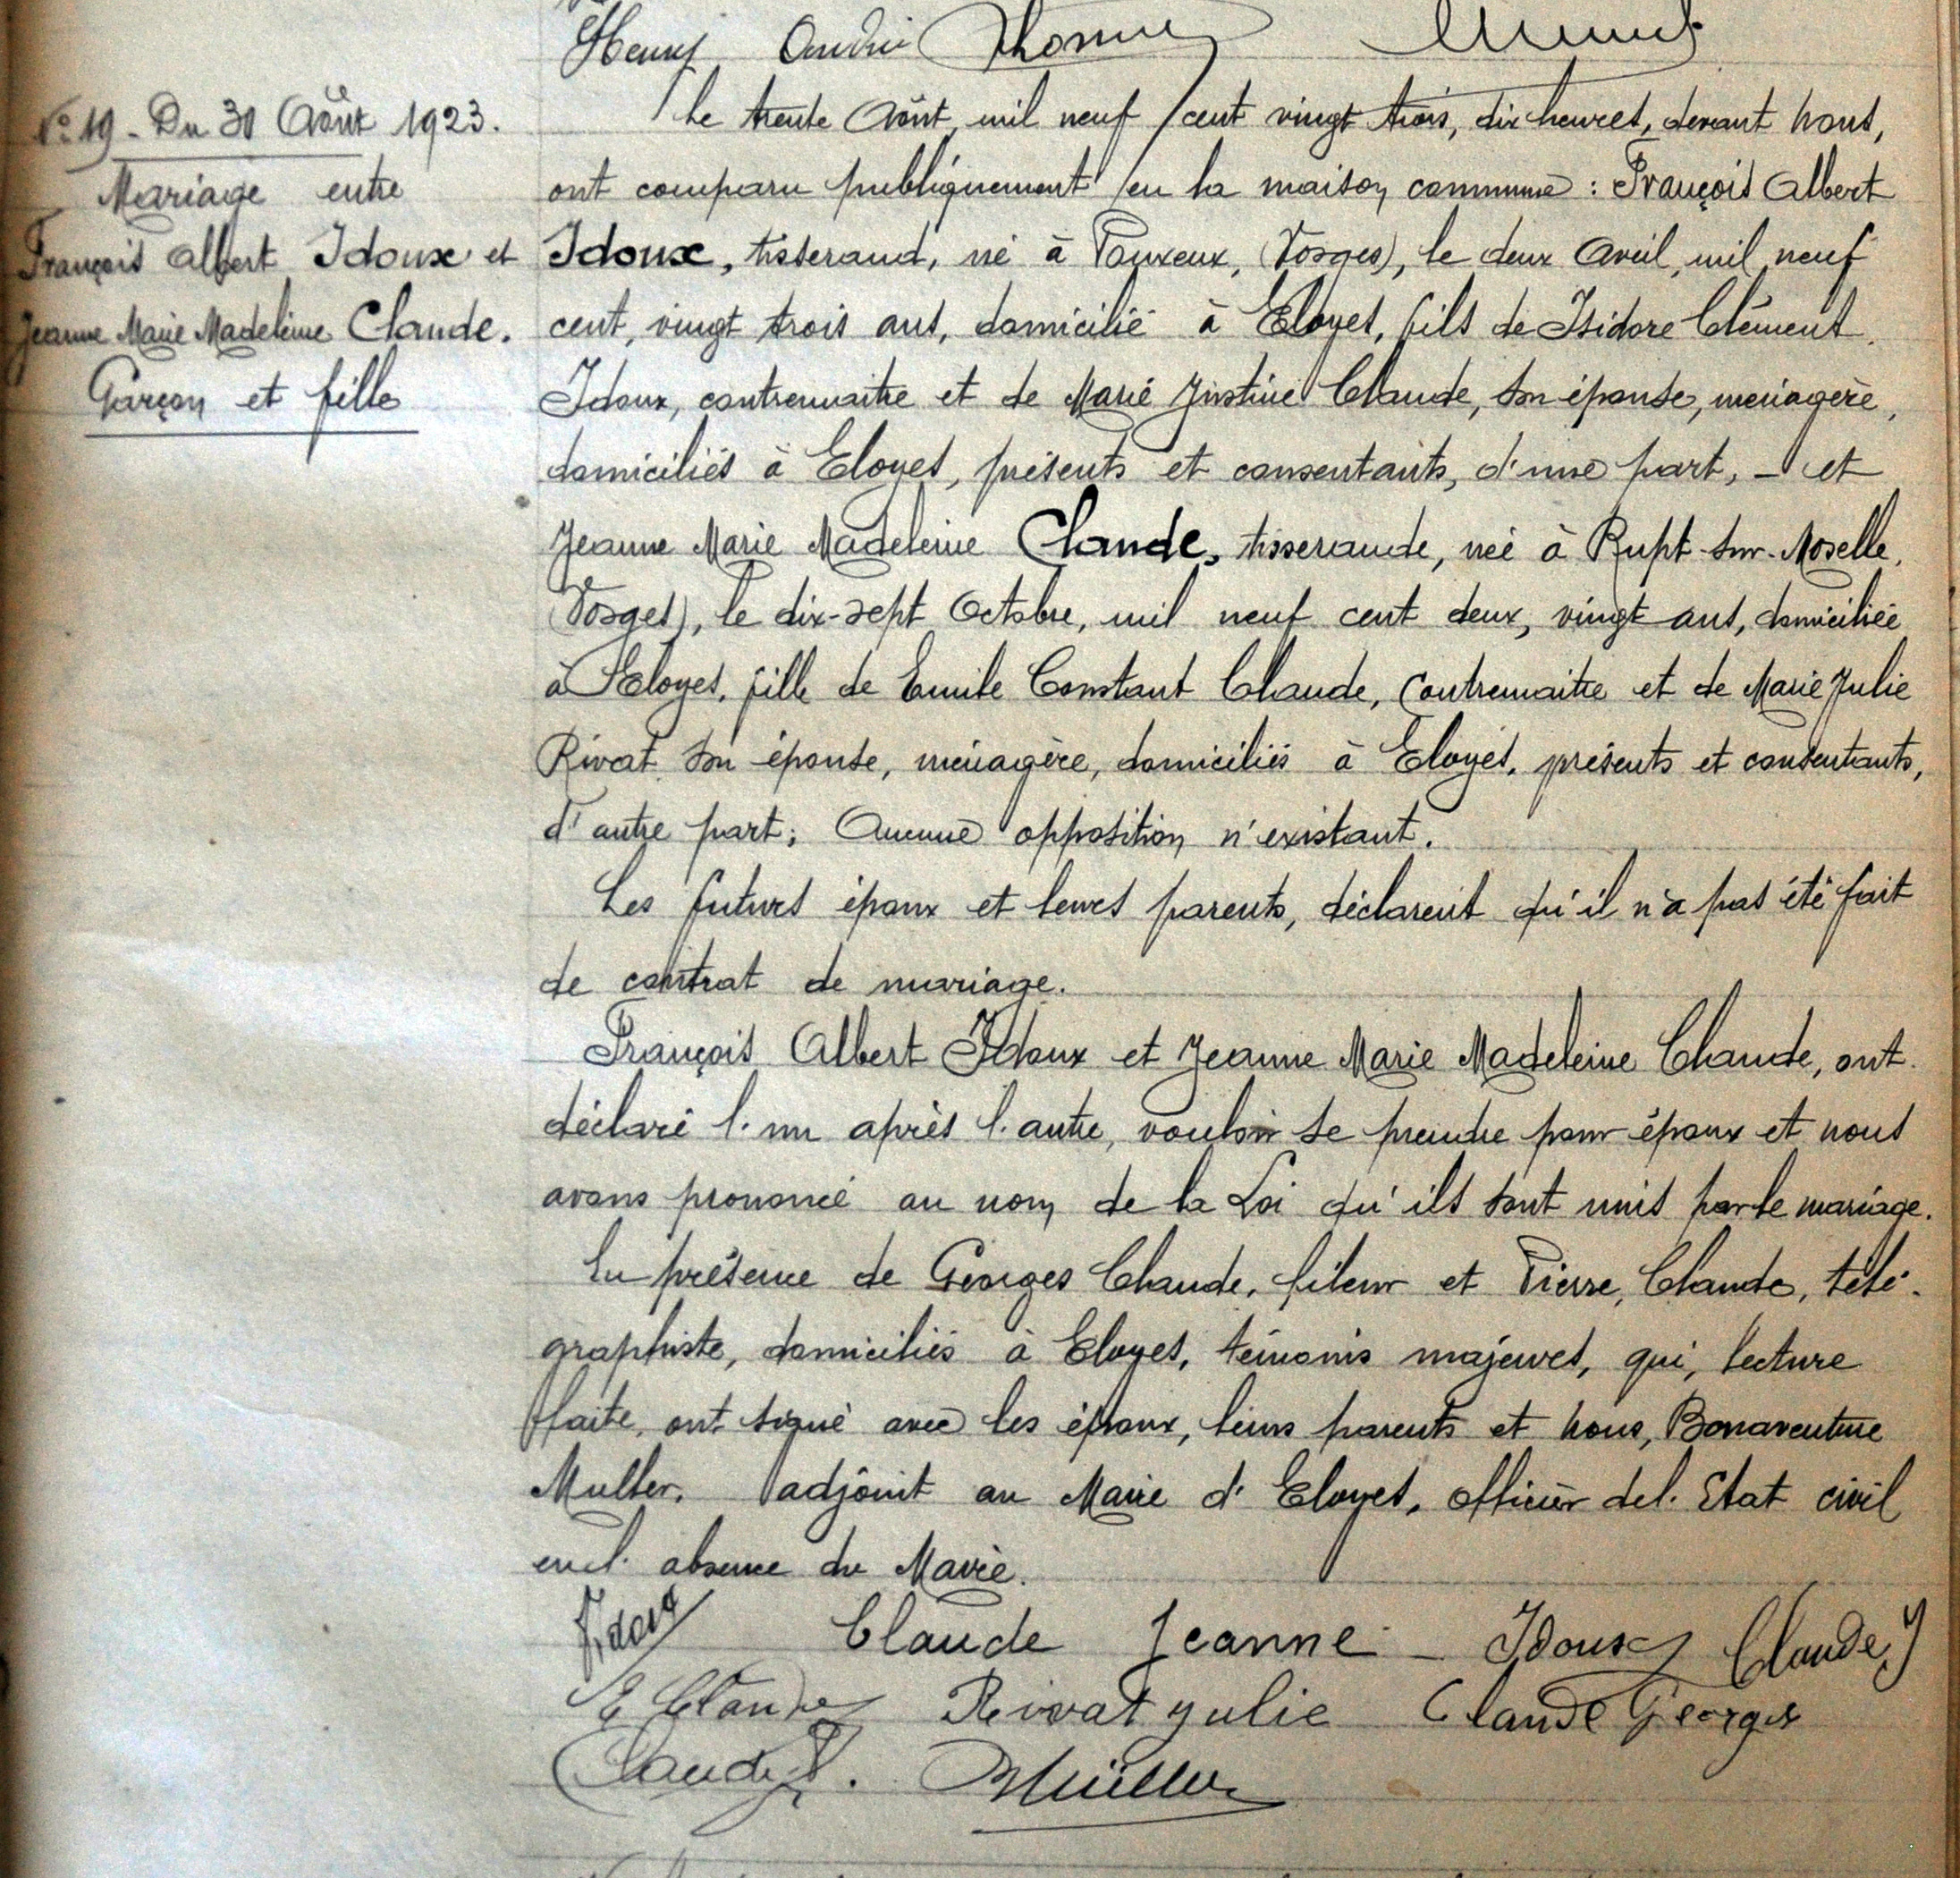 Henry André Thomas
N° 19 - Du 30 Août 1923.
Mariage entre
François Albert Idoux et
Jeanne Marie Madeleine Claude.
Garçon et fille
Le trente Août, mil neuf cent vingt trois, dix heures, devant Nous,
ont comparu publiquement en la maison commune : François Albert
Idoux, tisserand, né à Pouxeux, (Vosges), le deux Avril, mil neuf
cent, vingt trois ans, domicilié à Eloyes, fils de Isidore Clément
Idoux, contremaitre et de Marie Justine Claude, son épouse, ménagère,
domiciliés à Eloyes, présents et consentants, d'une part, - et
Jeanne Marie Madeleine Claude, tisserande, née à Rupt-sur-Moselle,
(Vosges), le dix-sept Octobre, mil neuf cent deux, vingt ans, domiciliée
à Eloyes, fille de Emile Constant Claude, Contremaitre et de Marie Julie
Rivat son épouse, ménagère, domiciliés à Eloyes, présents et consentants,
d'autre part ; Aucune opposition n'existant.
Les futurs époux et leurs parents, déclarent qu'il n'a pas été fait
de contrat de mariage.
François Albert Idoux et Jeanne Marie Madeleine Claude, ont
déclaré l'un après l'autre, vouloir se prendre pour époux et nous
avons prononcé au nom de la Loi qu'ils sont unis par le mariage.
En présence de Georges Claude, fileur et Pierre, Claude, télé-
graphiste, domiciliés à Eloyes, témoins majeurs, qui, lecture
faite, ont signé avec les époux, leurs parents et Nous, Bonaventure
Muller, adjoint au Maire d'Eloyes, officier de l'Etat civil
en l'absence du Maire.
Idoux Claude Jeanne - Idoux Claude J
E Claude Rivat Julie Claude Georges
Claude P. BMüller